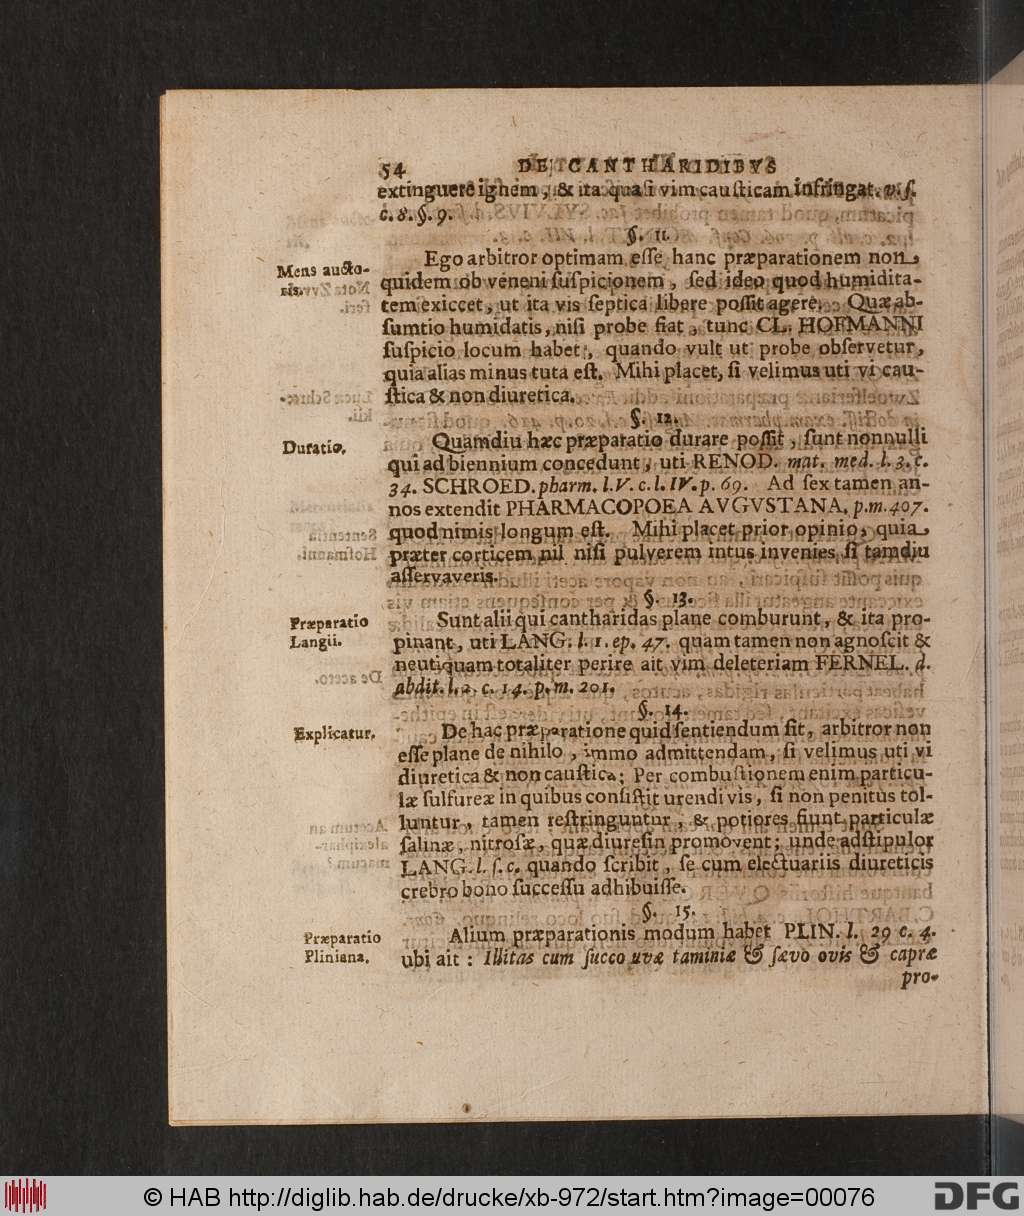 54 DE CANTHARIDIBVS
extinguere ignem, & ita quasi vim causticam infringat. vis.
c. 8. §. 9.
§. 11.
Mens aucto-
ris.
Ego arbitror optimam esse hanc præparationem non
quidem ob veneni suspicionem, sed ideo quod humidita-
tem exiccet, ut ita vis septica libere possit agere. Quæ ab-
sumtio humidatis, nisi probe fiat, tunc CL. HOFMANNI
suspicio locum habet, quando vult ut probe observetur,
quia alias minus tuta est. Mihi placet, si velimus uti vi cau-
stica & non diuretica.
§. 12.
Duratio.
Quamdiu hæc præparatio durare possit, sunt nonnulli
qui ad biennium concedunt, uti RENOD. mat. med. l. 3. c.
34. SCHROED. pharm. l. V. c. l. IV. p. 69. Ad sex tamen an-
nos extendit PHARMACOPOEA AVGVSTANA, p. m. 407.
quod nimis longum est. Mihi placet prior opinio, quia
præter corticem nil nisi pulverem intus invenies, si tamdiu
asservaveris.
§. 13.
Præparatio
Langii.
Sunt alii qui cantharidas plane comburunt, & ita pro-
pinant, uti LANG. l. 1. ep. 47. quam tamen non agnoscit &
neutiquam totaliter perire ait vim deleteriam FERNEL. d.
abdit. l. 2. c. 14. p. m. 201.
§. 14.
Explicatur.
De hac præparatione quid sentiendum sit, arbitror non
esse plane de nihilo, immo admittendam, si velimus uti vi
diuretica & non caustica; Per combustionem enim particu-
læ sulfureæ in quibus consistit urendi vis, si non penitùs tol-
luntur, tamen restringuntur, & potiores fiunt particulæ
salinæ, nitrosæ, quæ diuresin promovent; unde adstipulor
LANG. l. s. c. quando scribit, se cum electuariis diureticis
crebro bono successu adhibuisse.
§. 15.
Præparatio
Pliniana.
Alium præparationis modum habet PLIN. l. 29 c. 4.
ubi ait: Illitas cum succo uvæ taminiæ & sævo ovis & capræ
pro-
© HAB http://diglib.hab.de/drucke/xb-972/start.htm?image=00076
DFG